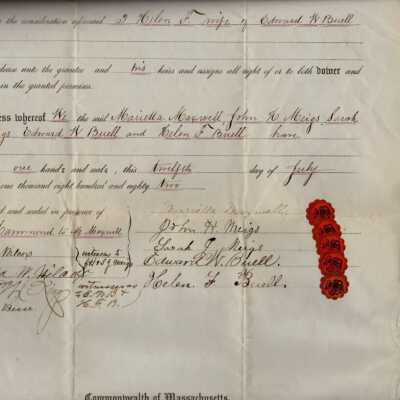 the consideration aforesaid I Helen F. wife of Edward W Buell
unto the grantee and his heirs and assigns all right of or to both dower and
in the granted premises.
ess whereof We the said Marietta Maxwell, John H Meigs, Sarah
gs Edward W Buell and Helen F Buell have
one hands and seals, this twelfth day of July
one thousand eight hundred and eighty two
and sealed in presence of
to M. Maxwell Marietta Maxwell
John H. Meigs
witness to Sarah J. Meigs
Edward W. Buell.
witnesses Helen F. Buell.
to E.W.B. &
H. F. B.
Commonwealth of Massachusetts.